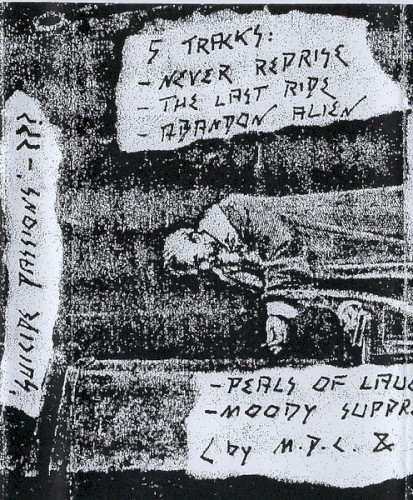 5 TRACKS:
- NEVER REPRISE
- THE LAST RIDE
- ABANDON ALIEN
'SUICIDE PASSIONS' - ???
- PEALS OF LAU
- MOODY SUPPR
( by &